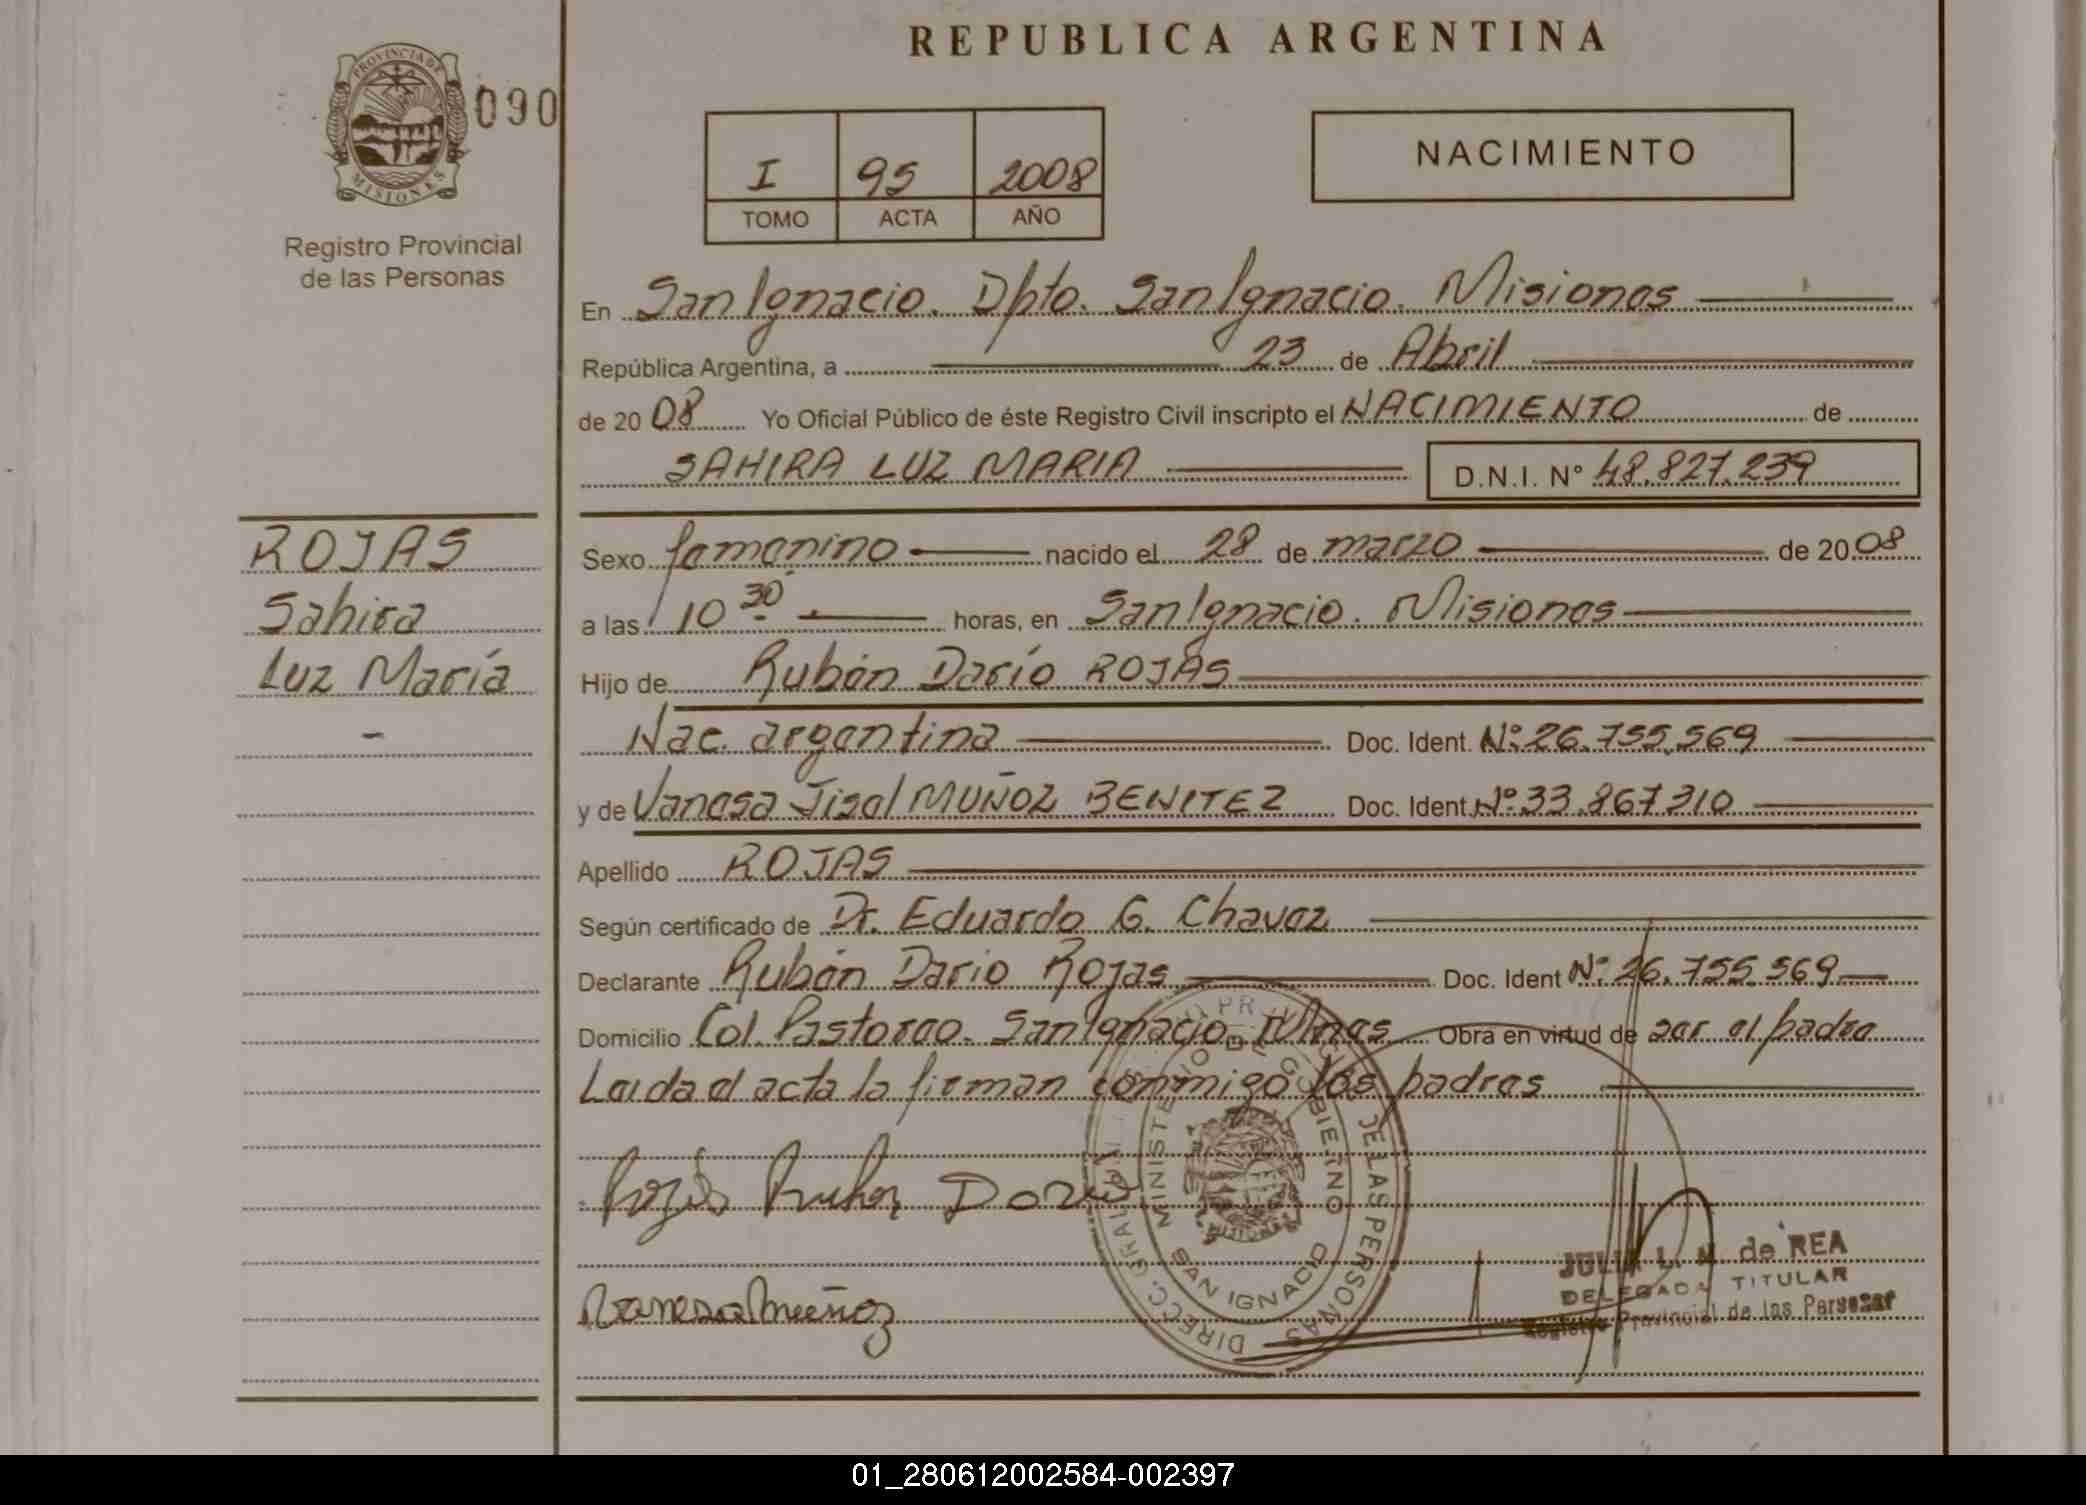 REPUBLICA ARGENTINA
PROVINCIA DE MISIONES
090
Registro Provincial
de las Personas
I 95 2008
TOMO ACTA AÑO
NACIMIENTO
En San Ignacio. Dpto. San Ignacio. Misiones
República Argentina, a 23 de Abril
de 2008 Yo Oficial Público de éste Registro Civil inscripto el NACIMIENTO de
SAHIRA LUZ MARIA D.N.I. N° 48.827.239
ROJAS
Sahira
Luz María
-
Sexo femenino nacido el 28 de marzo de 2008
a las 10 30 horas, en San Ignacio. Misiones
Hijo de Rubén Darío ROJAS
Nac. argentina Doc. Ident. N° 26.755.569
y de Vanesa Jisel MUÑOZ BENITEZ Doc. Ident. N° 33.867.310
Apellido ROJAS
Según certificado de Dr. Eduardo G. Chavez
Declarante Rubén Dario Rojas Doc. Ident N° 26.755.569
Domicilio Col. Pastoreo. San Ignacio. Mnes Obra en virtud de ser el padre
Leida el acta la firman conmigo los padres
Rojas Ruben Dario
Vanesa Muñoz
DIRECC. GRAL. DE LAS PERSONAS
MINISTERIO DE GOBIERNO
MISIONES
SAN IGNACIO
JULIA L. M. de REA
DELEGADA TITULAR
Registro Provincial de las Personas
01_280612002584-002397